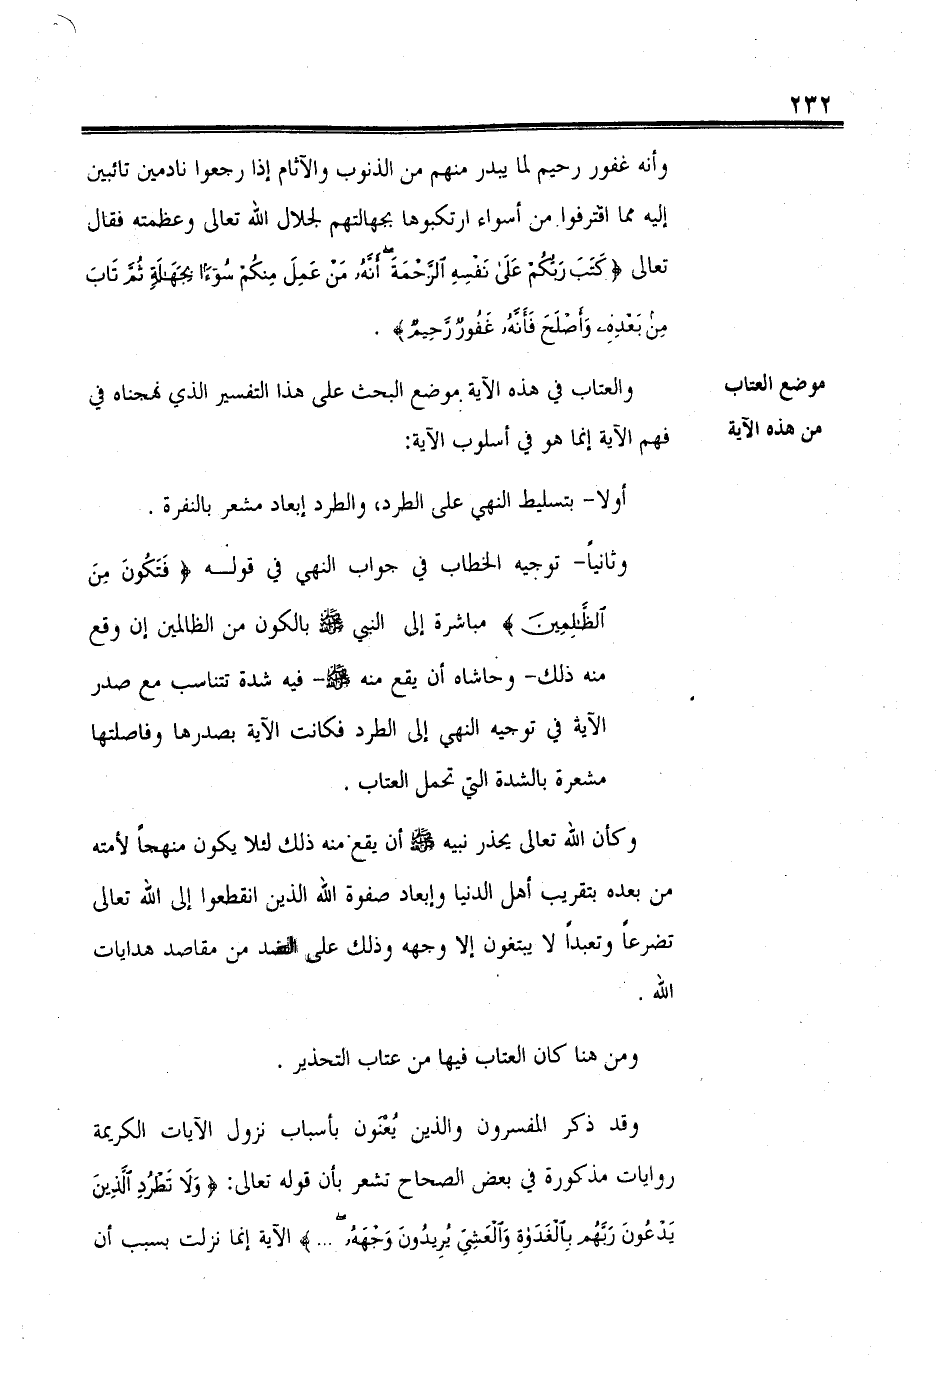 ٢٣٢
وأنه غفور رحيم لما يبدر منهم من الذنوب والآثام إذا رجعوا نادمين تائبين
إليه مما اقترفوا من أسواء ارتكبوها بجهالتهم لجلال الله تعالى وعظمته فقال
تعالى ﴿ كَتَبَ رَبُّكُمْ عَلَىٰ نَفْسِهِ ٱلرَّحْمَةَ ۖ أَنَّهُۥ مَنْ عَمِلَ مِنكُمْ سُوٓءًۢا بِجَهَـٰلَةٍ ثُمَّ تَابَ
مِنۢ بَعْدِهِۦ وَأَصْلَحَ فَأَنَّهُۥ غَفُورٌ رَّحِيمٌ﴾ .
موضع العتاب
من هذه الآية
والعتاب في هذه الآية موضع البحث على هذا التفسير الذي نهجناه في
فهم الآية إنما هو في أسلوب الآية:
أولا- بتسليط النهي على الطرد، والطرد إبعاد مشعر بالنفرة .
وثانياً- توجيه الخطاب في جواب النهي في قولـــه ﴿ فَتَكُونَ مِنَ
ٱلظَّـٰلِمِينَ ﴾ مباشرة إلى النبي ﷺ بالكون من الظالمين إن وقع
منه ذلك- وحاشاه أن يقع منه ﷺ- فيه شدة تتناسب مع صدر
الآية في توجيه النهي إلى الطرد فكانت الآية بصدرها وفاصلتها
مشعرة بالشدة التي تحمل العتاب .
وكأن الله تعالى يحذر نبيه ﷺ أن يقع منه ذلك لئلا يكون منهجاً لأمته
من بعده بتقريب أهل الدنيا وإبعاد صفوة الله الذين انقطعوا إلى الله تعالى
تضرعاً وتعبداً لا يبتغون إلا وجهه وذلك على الضد من مقاصد هدايات
الله .
ومن هنا كان العتاب فيها من عتاب التحذير .
وقد ذكر المفسرون والذين يُعْنَون بأسباب نزول الآيات الكريمة
روايات مذكورة في بعض الصحاح تشعر بأن قوله تعالى: ﴿ وَلَا تَطْرُدِ ٱلَّذِينَ
يَدْعُونَ رَبَّهُم بِٱلْغَدَوٰةِ وَٱلْعَشِىِّ يُرِيدُونَ وَجْهَهُۥ ۖ ... ﴾ الآية إنما نزلت بسبب أن